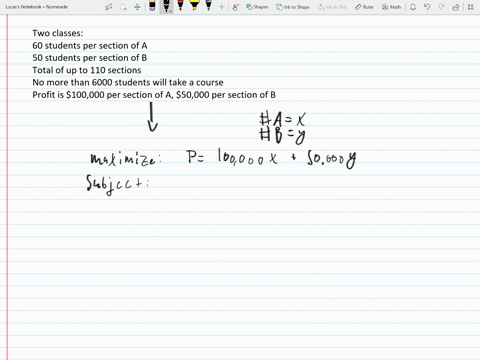 Lucas's Notebook » Numerade
Shapes Ink to Shape Ink to Text Ruler Math
Two classes:
60 students per section of A
50 students per section of B
Total of up to 110 sections
No more than 6000 students will take a course
Profit is $100,000 per section of A, $50,000 per section of B
# A = x
# B = y
maximize: P = 100,000x + 50,000y
Subject: